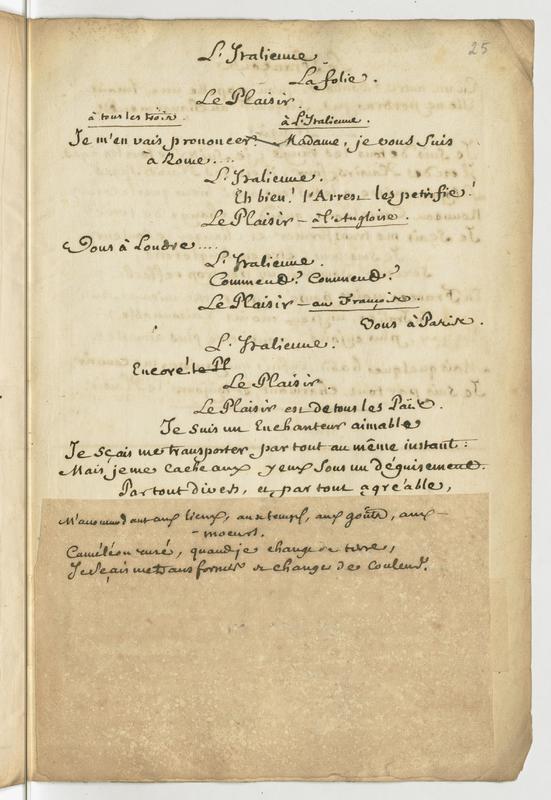 25
L'Italienne.
La folie.
Le Plaisir.
à tous les trois. à L'Italienne.
Je m'en vais prononcer. Madame, je vous suis
à Rome....
L'Italienne.
Eh bien! l'Arrest les petrifie!
Le Plaisir - à l'Angloise.
Vous à Londre....
L'Italiénne.
Commend? Commend?
Le Plaisir - au François.
Vous à Paris.
L'Italienne.
Encore! le Pl
Le Plaisir.
Le Plaisir est de tous les Païs.
Je suis un Enchanteur aimable
Je sçais me transporter par tout au même instant:
Mais je me cache aux yeux sous un déguisement.
Partout divers, et par tout agréable,
M'acommodant aux lieux, aux temps, aux goûts, aux
moeurs.
Caméléon rusé, quand je change de terre,
Je sçais me transformer et changer de couleurs.